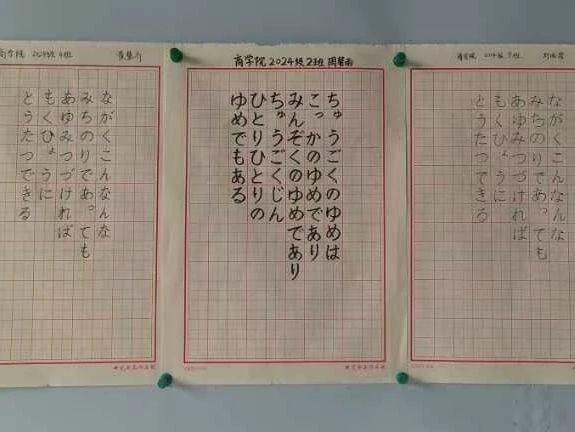 商学院 2024级
ながくこんなんな
みちのりであっても
あゆみつづければ
もくひょうに
とうたつできる
商学院 2024级
ちゅうごくのゆめは
こっかのゆめであり
みんぞくのゆめであり
ちゅうごくじん
ひとりひとりの
ゆめでもある
商学院
ながくこんなんな
みちのりであっても
あゆみつづければ
もくひょうに
とうたつできる